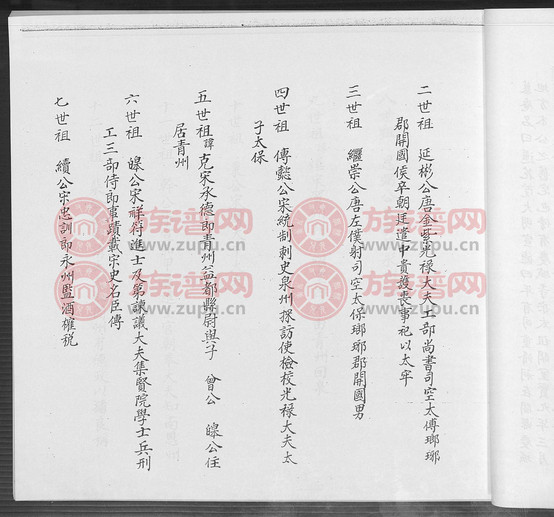 二世祖 延彬公唐金紫光祿大夫工部尚書司空太傅瑯琊
郡開國侯卒朝廷遣中貴護喪事祀以太牢
三世祖 繼崇公唐左僕射司空太保瑯琊郡開國男
四世祖 傳懿公宋統制刺史泉州探訪使檢校光祿大夫太
子太保
五世祖諱克宋承德郎青州益都縣尉與子 曾公 皞公住
居青州
六世祖 皞公宋祥符進士及第諫議大夫集賢院學士兵刑
工三部侍郎事蹟載宋史名臣傳
七世祖 續公宋忠訓郎永州監酒榷稅
族谱网
www.zupu.cn
族谱网
www.zupu.cn
族谱网
www.zupu.cn
族谱网
www.zupu.cn